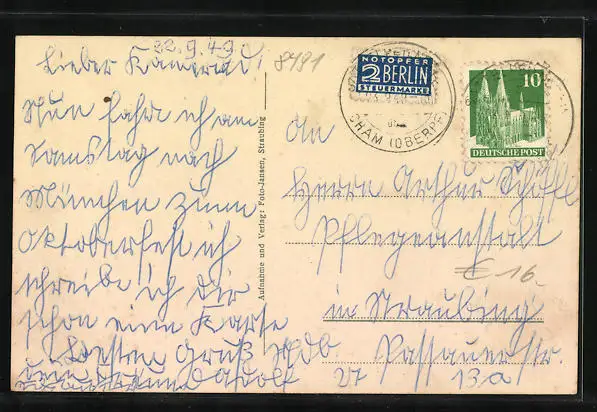 22.9.49
Lieber Kamerad!
8481
Nun fahr ich am
Samstag nach
München zum
Oktoberfest ich
schreibe ich dir
schon eine Karte
Besten Gruß
Adolf
Aufnahme und Verlag: Foto-Jansen, Straubing
NOTOPFER
2 BERLIN
STEUERMARKE
CHAM (OBERPF
10
DEUTSCHE POST
An
Herrn Arthur Schöfl
Pflegeanstalt
€ 16.-
in Straubing
Passauerstr.
27 13a